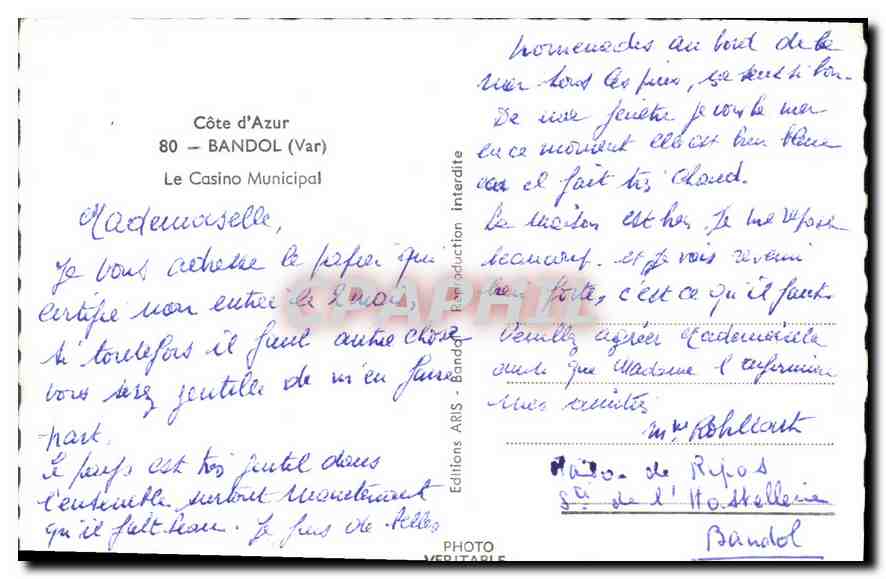 Côte d'Azur
80 — BANDOL (Var)
Le Casino Municipal
Mademoiselle,
Je vous adresse le papier qui
certifie mon entrée le 2 mois,
si toutefois il faut autre chose
vous serez gentille de m'en faire
part.
Le pays est très gentil dans
l'ensemble surtout maintenant
qu'il fait beau. Je fais de belles
promenades au bord de la
mer sous les pins, ça sent si bon.
De ma fenêtre je vois la mer
en ce moment elle est bien bleue
car il fait très chaud.
La maison est bien. Je me repose
beaucoup. et je vais revenir
bien forte, c'est ce qu'il faut.
Veuillez agréer Mademoiselle
ainsi que Madame l'infirmière
mes amitiés
Mme
Maison de Repos
de l'Hostellerie
Bandol
Editions ARIS - Bandol Reproduction interdite
PHOTO
VERITABLE
CPARPHIL